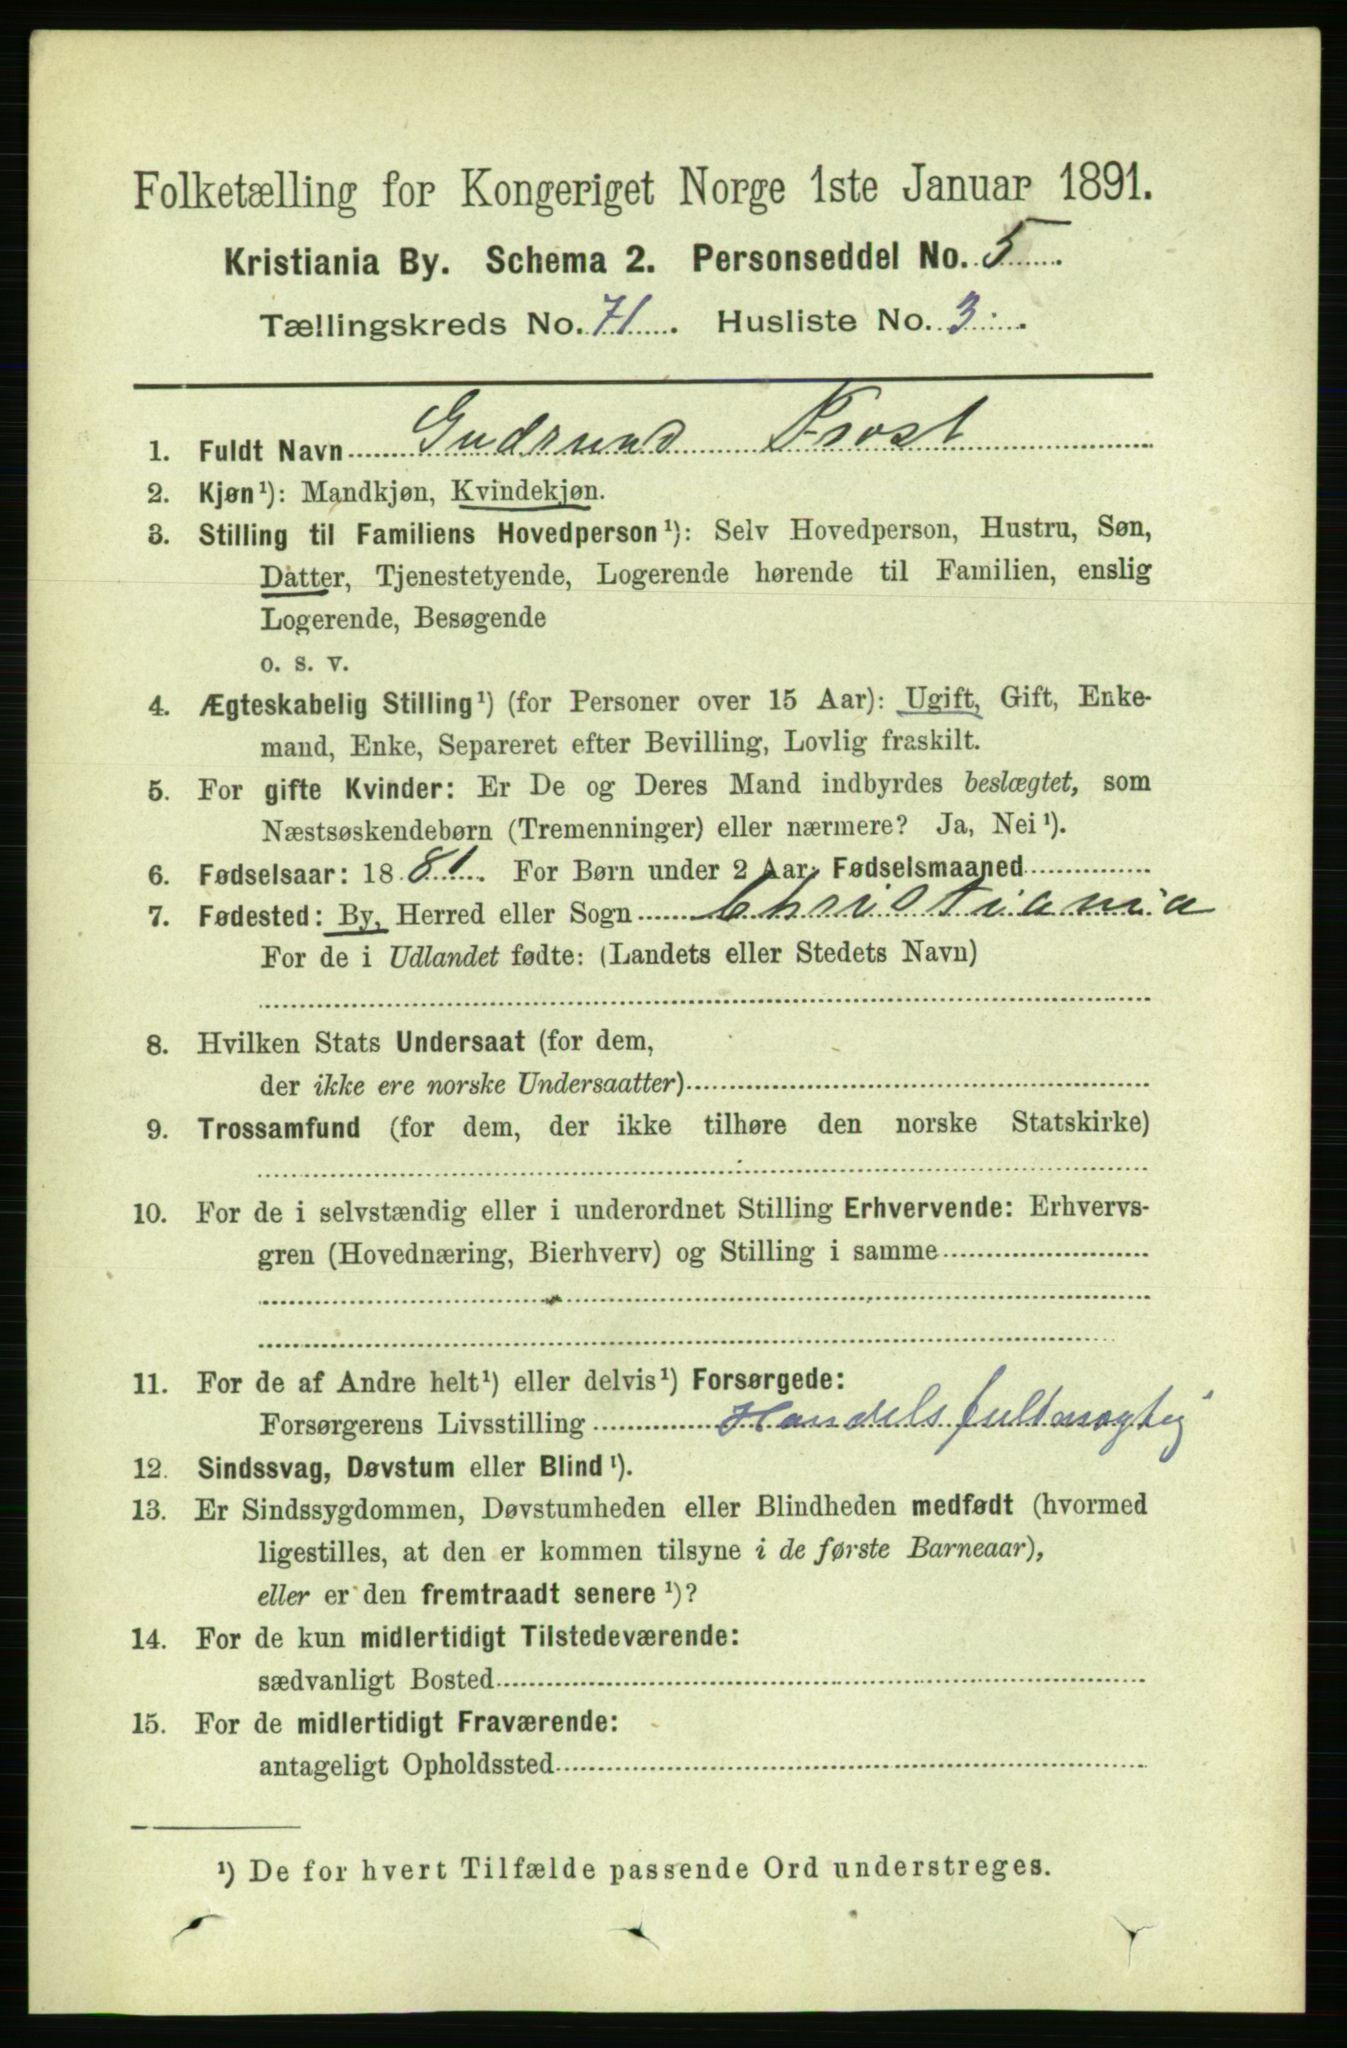 Folketælling for Kongeriget Norge 1ste Januar 1891.
Kristiania By. Schema 2. Personseddel No. 5
Tællingskreds No. 71. Husliste No. 3.
1. Fuldt Navn Gudrund Frost
2. Kjøn¹): Mandkjøn, Kvindekjøn.
3. Stilling til Familiens Hovedperson¹): Selv Hovedperson, Hustru, Søn,
Datter, Tjenestetyende, Logerende hørende til Familien, enslig
Logerende, Besøgende
o. s. v.
4. Ægteskabelig Stilling¹) (for Personer over 15 Aar): Ugift, Gift, Enke-
mand, Enke, Separeret efter Bevilling, Lovlig fraskilt.
5. For gifte Kvinder: Er De og Deres Mand indbyrdes beslægtet, som
Næstsøskendebørn (Tremenninger) eller nærmere? Ja, Nei¹).
6. Fødselsaar: 1881. For Børn under 2 Aar: Fødselsmaaned
7. Fødested: By, Herred eller Sogn Christiania
For de i Udlandet fødte: (Landets eller Stedets Navn)
8. Hvilken Stats Undersaat (for dem,
der ikke ere norske Undersaatter)
9. Trossamfund (for dem, der ikke tilhøre den norske Statskirke)
10. For de i selvstændig eller i underordnet Stilling Erhvervende: Erhvervs-
gren (Hovednæring, Bierhverv) og Stilling i samme
11. For de af Andre helt¹) eller delvis¹) Forsørgede:
Forsørgerens Livsstilling Handelsfuldmægtig
12. Sindssvag, Døvstum eller Blind¹).
13. Er Sindssygdommen, Døvstumheden eller Blindheden medfødt (hvormed
ligestilles, at den er kommen tilsyne i de første Barneaar),
eller er den fremtraadt senere¹)?
14. For de kun midlertidigt Tilstedeværende:
sædvanligt Bosted
15. For de midlertidigt Fraværende:
antageligt Opholdssted
¹) De for hvert Tilfælde passende Ord understreges.